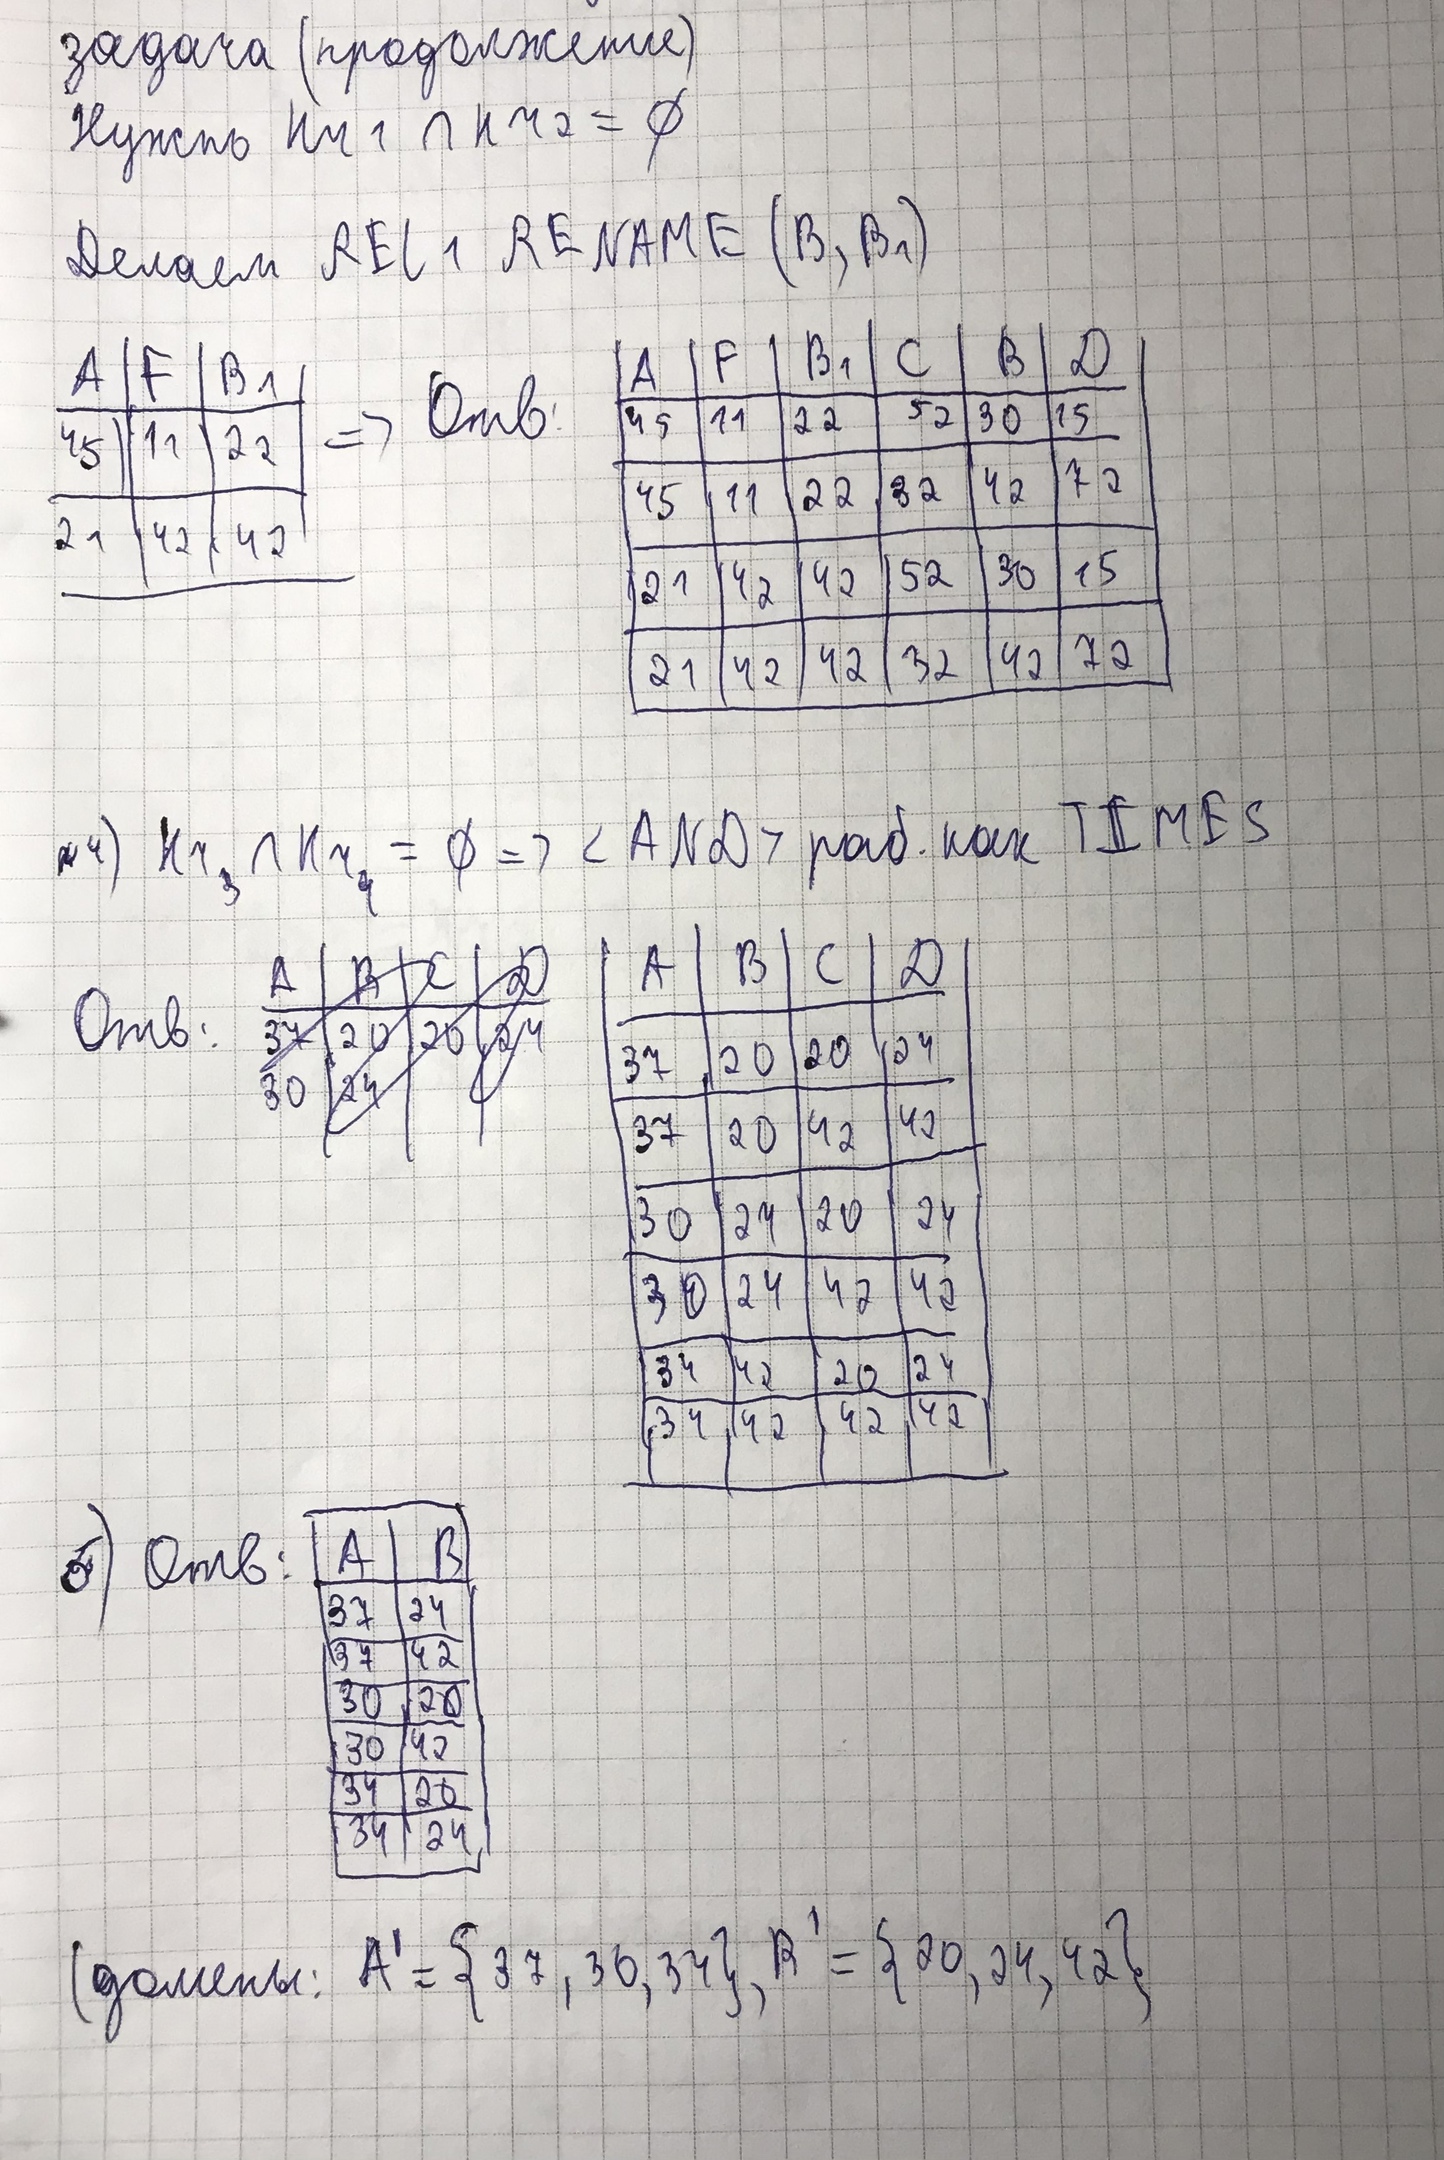 задача (продолжение)
Нужно Кч1 ∩ Кч2 = ∅
Делаем REL1 RENAME (B, B1)
A F B1
45 11 22
21 42 42
=> Отв:
A F B1 C B D
45 11 22 52 30 15
45 11 22 32 42 72
21 42 42 52 30 15
21 42 42 32 42 72
4) Кч3 ∩ Кч4 = ∅ => <AND> раб. как TIMES
Отв:
A B C D
37 20 20 24
30 24
A B C D
37 20 20 24
37 20 42 42
30 24 20 24
30 24 42 42
34 42 20 24
34 42 42 42
5) Отв:
A B
37 24
37 42
30 20
30 42
34 20
34 24
(домены: A' = {37, 30, 34}, B' = {20, 24, 42}